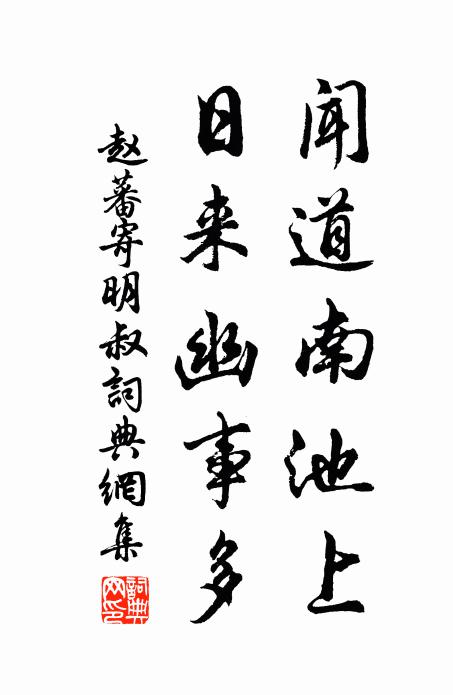 闻道南池上
日来幽事多
赵蕃寄明叔詞典網集
詞典网印